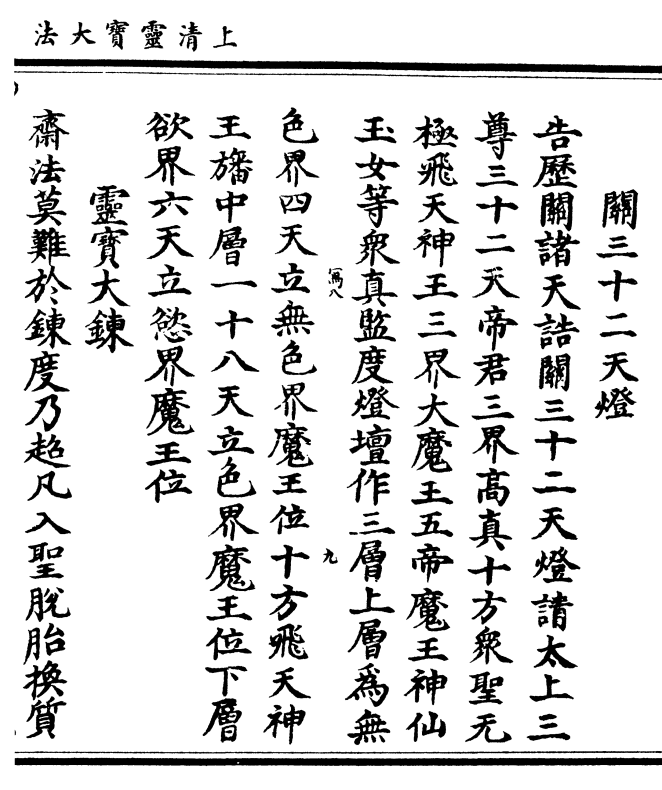 上清靈寶大法
關三十二天燈
告歷關諸天誥關三十二天燈請太上三
尊三十二天帝君三界高真十方衆聖无
極飛天神王三界大魔王五帝魔王神仙
玉女等衆真監度燈壇作三層上層爲無
寫八
九
色界四天立無色界魔王位十方飛天神
王旛中層一十八天立色界魔王位下層
欲界六天立慾界魔王位
靈寶大鍊
齋法莫難於鍊度乃超凡入聖脫胎換質